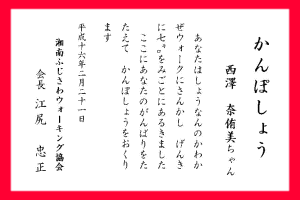 かんぽしょう
西澤 奈侑美ちゃん
あなたはしょうなんのかわか
ぜウォークにさんかし げんき
にせ㌔をみごとにあるきました
ここにあなたのがんばりをた
たえて かんぽしょうをおくり
ます
平成十六年二月二十一日
湘南ふじさわウォーキング協会
会長 江尻 忠正